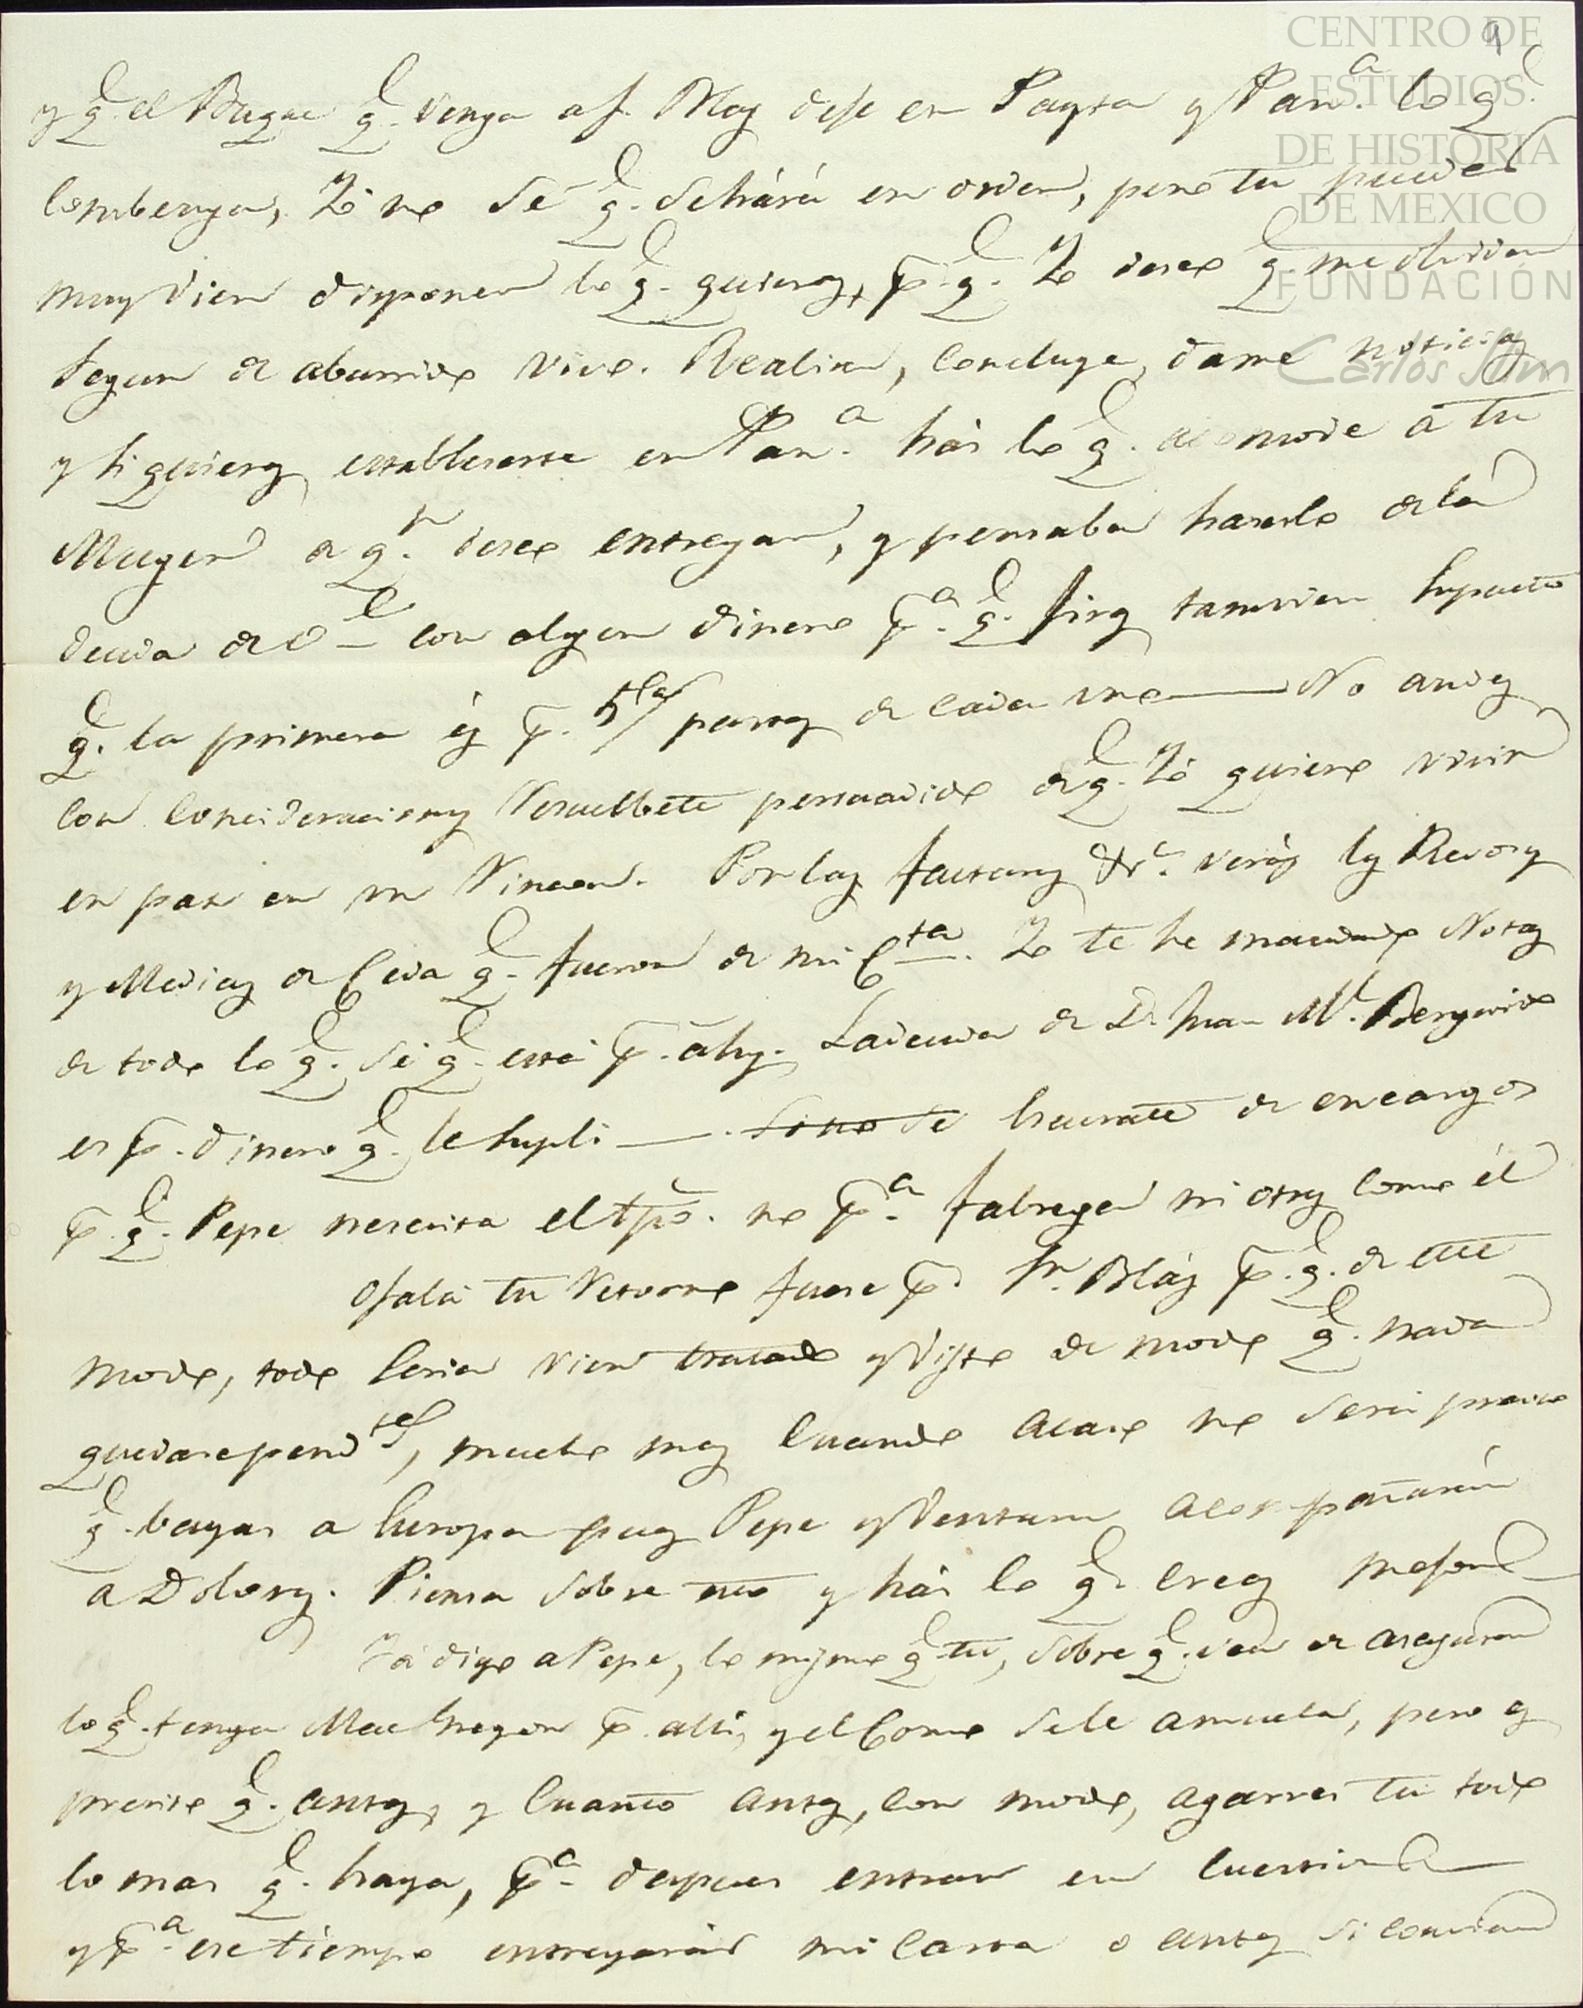 CENTRO DE
ESTUDIOS
DE HISTORIA
DE MEXICO
FUNDACIÓN
Carlos Slim
9
y q.e el Buque q.e venga a f. May deje en Payta y Pan.a lo q.e
combenga, Yo no sé q.e se hárá en orden, pero tu puedes
muy vien disponer lo q.e quieras, p.r q.e Yo deseo q.e me olviden
segun de aburrido vivo. Realiza, concluye, dame noticias
y si quieres establecerte en Pan.a hás lo q.e acomode a tu
Muger á q.n deseo entregar, y pensaba hacerlo de la
deuda de con algun dinero p.a q.e fixes tamvien supuesto
q.e la primera és p.r 5tas partes de cada uno — No andes
con consideraciones Resuelbete persuadido de q.e Yo quiero vivir
en paz en un Rincon. Por las facturas &.a verás los Rasos
y Medias de Ceda q.e fueron de mi C.ta Yo te he mandado Notas
de todo lo q.e sé q.e está p.r ahy. La deuda de D.n Juan M.l Bergara
es p.r dinero q.e le supli — Sino de Escusate de encargos
p.r q.e Pepe necesita el tpo. no p.a Fabrega ni otros como él
Ojalá tu Retorno fuese p.r S.n Blás p.r q.e de este
modo, todo seria vien tratado y visto de modo q.e nada
quedase pend.tes, mucho mas cuando acaso no será preciso
q.e bayas a Europa pues Pepe y Ventura acompañarán
a Dolores. Piensa sobre esto y hás lo q.e creas mejor —
Yá digo a Pepe, lo mismo q.e tu, sobre q.e vea de asegurar
lo q.e tenga MacGregor p.r alli, y el Como se le anuela, pero es
preciso q.e antes, y cuanto antes, con modo, agarres tu todo
lo mas q.e haya, p.a despues entrar en cuestion —
y p.a ese tiempo entregarás mi carta o antes si combiene